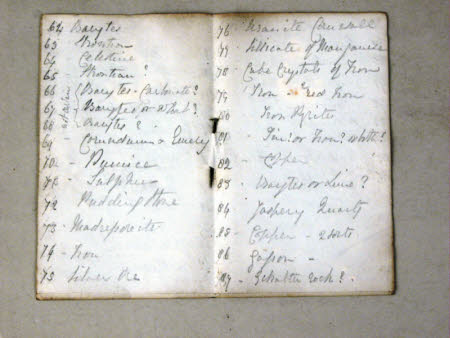 62 Barytes
63 Strontian
64 Celestine
65 Strontian?
66 Barytes Carbonate?
67 Barytes or what?
68 Barytes?
69 Corundum & Emery
70 - Pumice
71 - Sulphur
72 Pudding Stone
73 - Madreporite
74 - Iron
75 Silver Ore
76 - Cornwall
77 - Silicate of Manganese
78 Cube Crystals of Iron
79 Iron Red Iron
80 Iron Pyrites
81 Tin? or Iron? Which?
82 - Copper
83 - Barytes or Lime?
84 Jaspery Quartz
85 - Copper - 2 sorts
86
87 - rock?